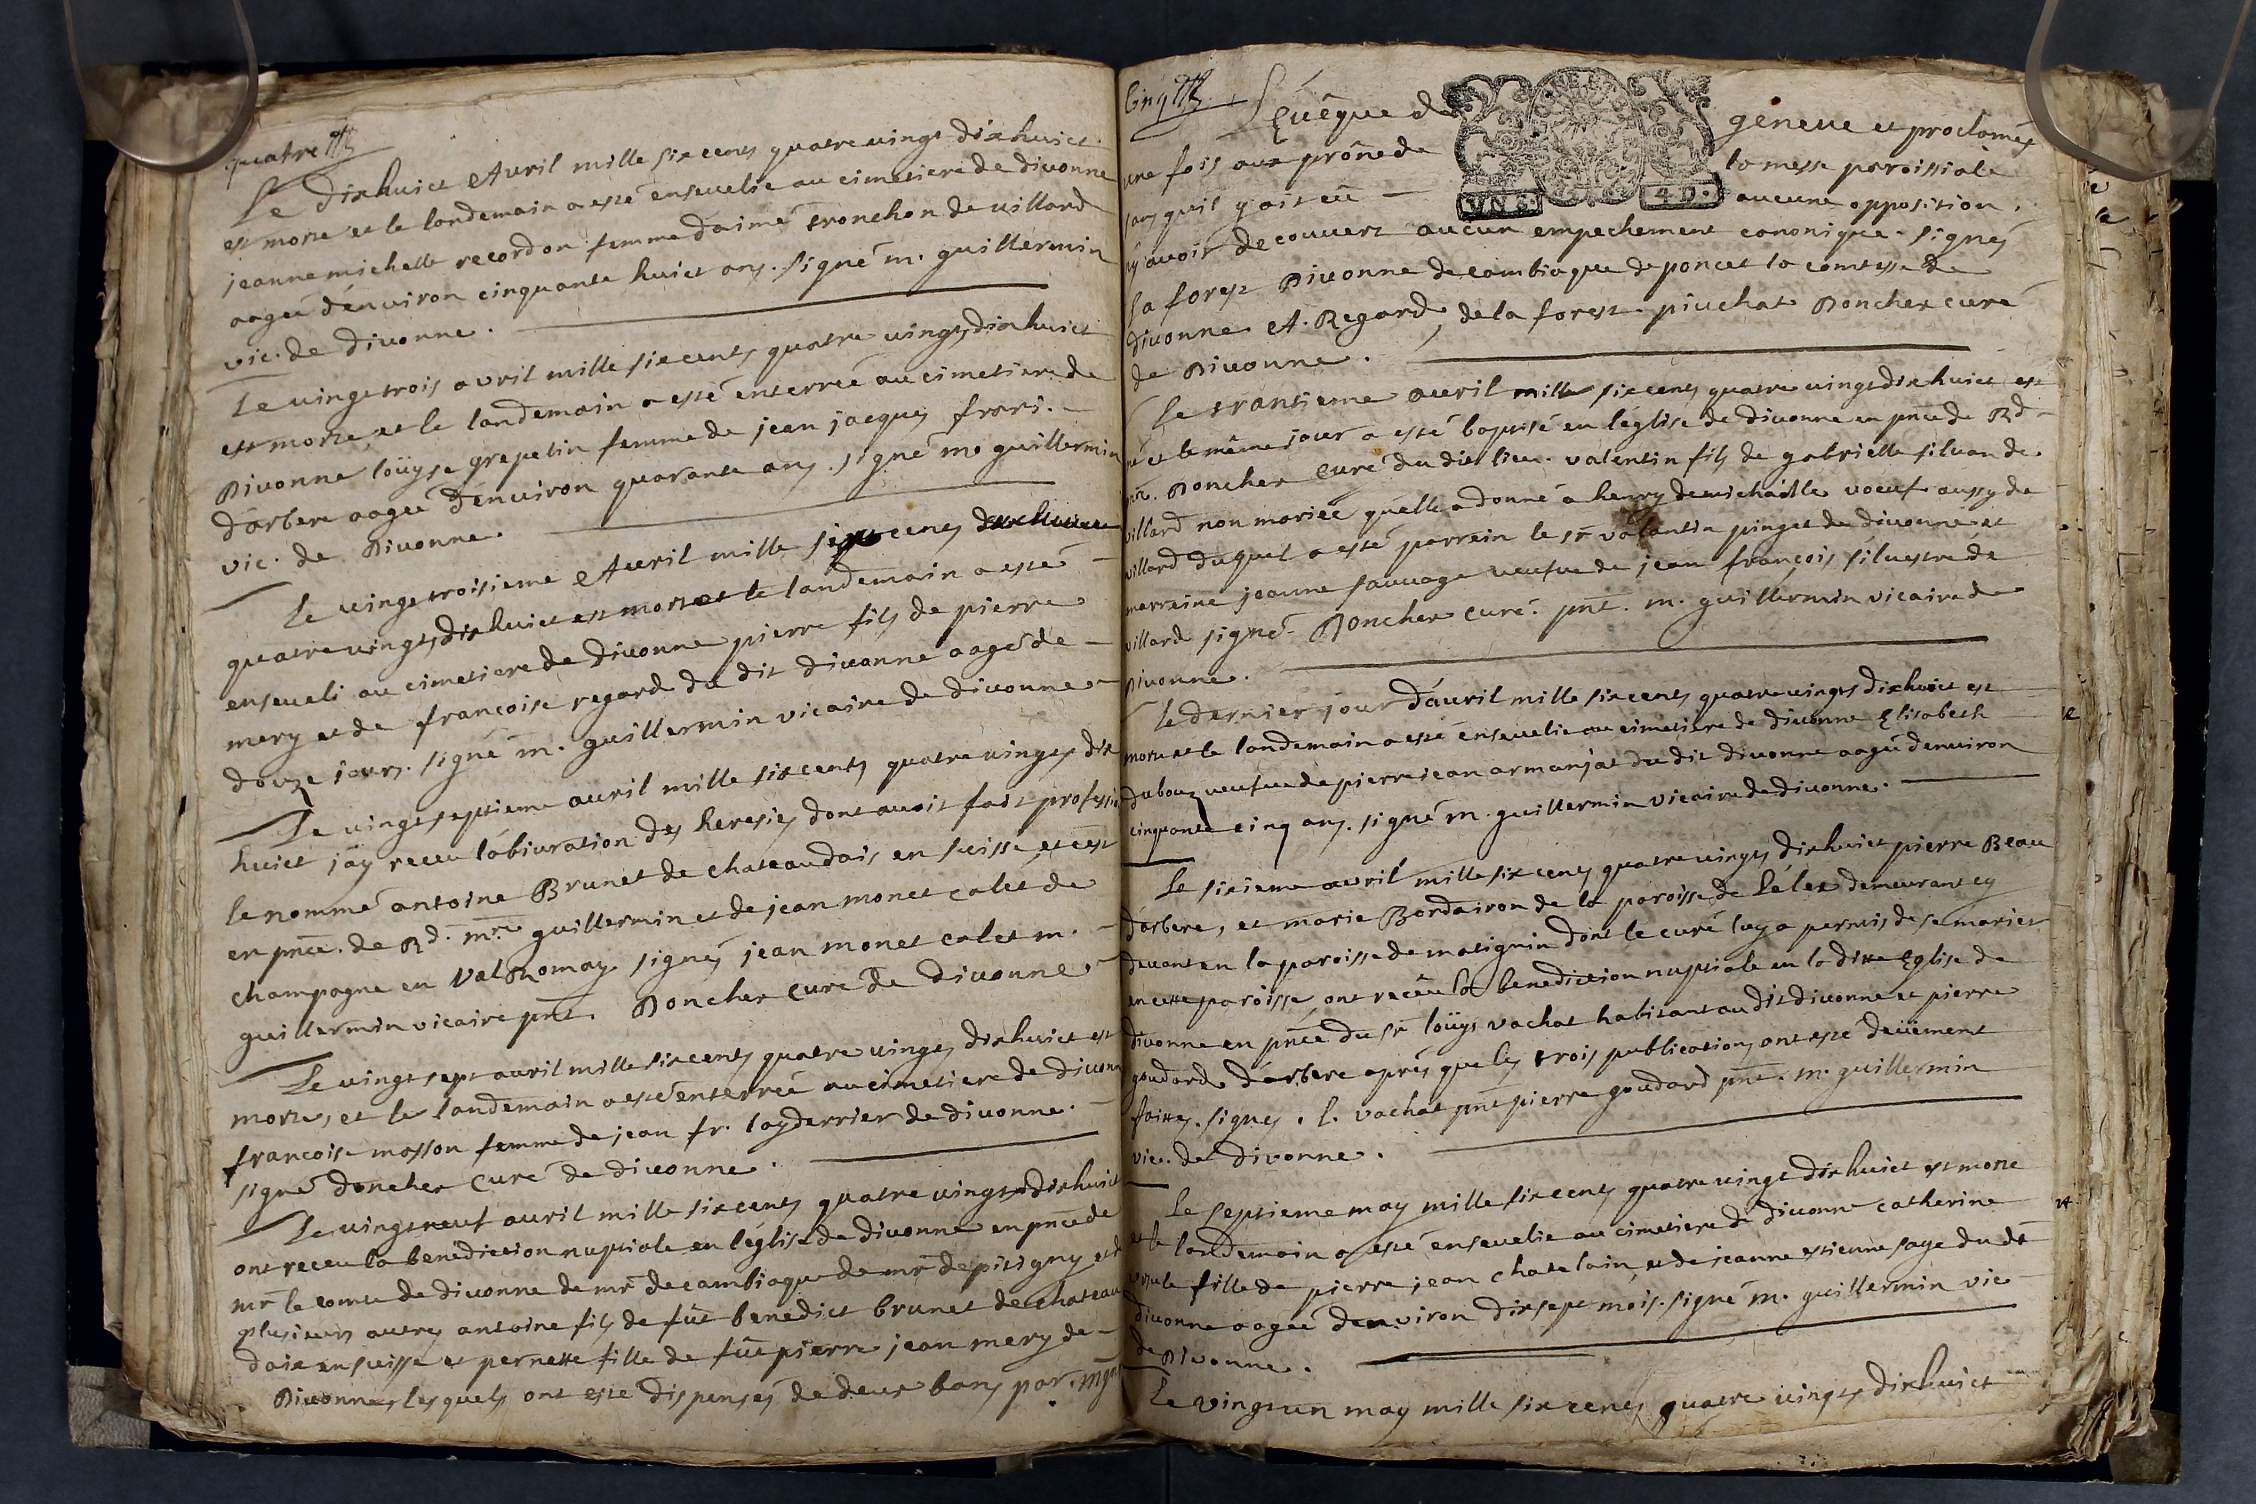 quatre
Le dixhuict Avril mille six cents quatre vingt dixhuict
est morte et le landemain a esté ensevelie au cimetiere de divonne
jeanne michelle recordon femme daimé tronchon de villard
aagée d'environ cinquante huict ans. signé m. guillermin
vic. de divonne.
Le vingt trois avril mille six cents quatre vingts dixhuict
est morte et le landemain a esté enterrée au cimetiere de
Divonne loüyse grepelin femme de jean jacques frari.
d'arbere aagée d'environ quarante ans. signé m. guillermin
vic. de Divonne.
Le vingt troisieme Avril mille six cents
quatre vingts dixhuict est mort et le landemain a esté
enseveli au cimetiere de divonne pierre fils de pierre
mery et de francoise regard du dit divonne aagé de
douze jours. signé m. guillermin vicaire de divonne
Le vingt septieme avril mille six cents quatre vingts dix
huict jäy receu l'abiuration des heresies dont avoit fait professi
le nommé antoine Brunet de chateaudais en suisse, et c'est
en pnce. de Rd. mre guillermin et de jean monet calet de
champagne en Valromay signés jean monet calet m.
guillermin vicaire pnt. Doncher curé de divonne
Le vingt sept avril mille six cents quatre vingts dixhuict est
morte, et le landemain a esté enterrée au cimetiere de divonn
francoise masson femme de jean fr. layderrier de divonne.
signé doncher curé de divonne.
Le vingt neuf avril mille six cents quatre vingts dixhuict
ont receu la benediction nuptiale en l'église de divonne en pnce de
mr le comte de divonne de mr de cambiague de mr de pitigny et de
plusieurs autres antoine fils de füt benedict brunet de chateau
daix en suisse et pernette fille de füt pierre jean mery de
Divonne, lesquels ont esté dispensés de deux bans par. mgr
Cinq
L'évêque de geneve et proclamés
une fois aux prône de la messe paroissiale
sans qu'il y ait eü aucune opposition,
n'y avoir decouvert aucun empechement canonique. signés
la forest Divonne de cambiague de poncet la comtesse de
divonne A. Regard, de la forest. piuchat Doncher curé
de Divonne.
Le trantieme avril mille six cents quatre vingt dixhuict est
né et le même jour a esté baptisé en l'église de divonne en pnce de Rd
mre. Doncher curé du dit lieu. valentin fils de gabrielle silvan de
villard non mariée qu'elle a donné a henry de michaille voeuf aussy de
villard duquel a esté parrein le sr valantin pinget de divonne et
marreine jeanne sauvage veufue de jean françois silvestre de
villard signé Doncher curé. pnt. m. guillermin vicaire de
Divonne.
le dernier jour d'avril mille six cents quatre vingts dixhuict est
morte et le landemain a esté ensevelie au cimetiere de divonne Elisabeth
dubouz veufue de pierre jean armanjat du dit divonne aagée denviron
cinquante cinq ans. signé m. guillermin vicaire de divonne.
Le sixieme avril mille six cens quatre vingts dixhuict pierre Beau
d'arbere, et marie Bordairon de la paroisse de Lélex demeurant cy
devant en la paroisse de matignin dont le curé luy a permis de se marier
en cette paroisse, ont receü la benediction nuptiale en la ditte Eglise de
divonne en pnce du sr loüys vachat habitant au dit divonne et pierre
goudard d'arbere aprés que les trois publications ont esté deüement
faittes. signés. l. vachat pnt pierre goudard pnt. m. guillermin
vic. de divonne.
Le septieme may mille six cents quatre vingt dixhuict est morte
et le landemain a esté ensevelie au cimetiere de divonne catherine
fille de pierre jean chatelain et de jeanne estienne sage du dt
divonne aagée denviron dix sept mois. signé m. guillermin vic
de Divonne.
Le vingt un may mille six cents quatre vingts dixhuict